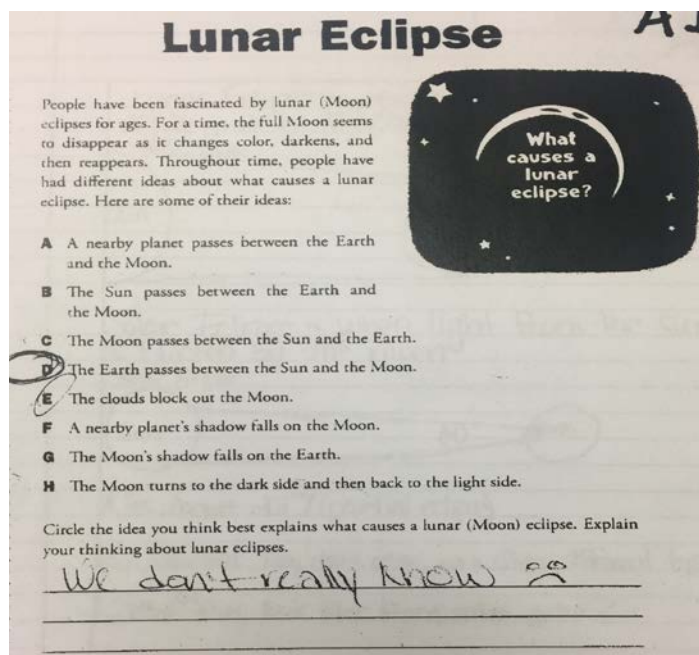 Lunar Eclipse
People have been fascinated by lunar (Moon)
eclipses for ages. For a time, the full Moon seems
to disappear as it changes color, darkens, and
then reappears. Throughout time, people have
had different ideas about what causes a lunar
eclipse. Here are some of their ideas:
What
causes a
lunar
eclipse?
A A nearby planet passes between the Earth
and the Moon.
B The Sun passes between the Earth and
the Moon.
C The Moon passes between the Sun and the Earth.
D The Earth passes between the Sun and the Moon.
E The clouds block out the Moon.
F A nearby planet's shadow falls on the Moon.
G The Moon's shadow falls on the Earth.
H The Moon turns to the dark side and then back to the light side.
Circle the idea you think best explains what causes a lunar (Moon) eclipse. Explain
your thinking about lunar eclipses.
We don't really know